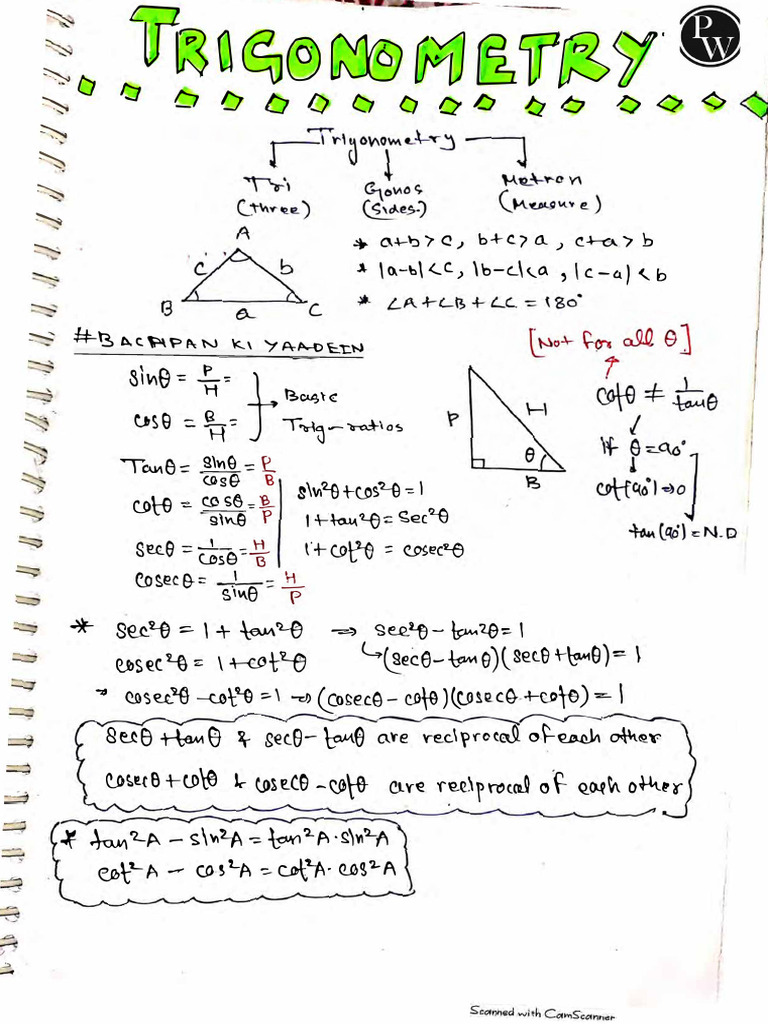 TRIGONOMETRY
PW
Trigonometry
Tri Gonos Metron
(three) (Sides.) (Measure)
A
c b
B a C
* a+b>c, b+c>a, c+a>b
* |a-b|<c, |b-c|<a, |c-a|<b
* ∠A+∠B+∠C = 180°
#BACHPAN KI YAADEIN
[Not for all θ]
sinθ = P/H =
cosθ = B/H =
Basic
Trig-ratios
P H
θ
B
cotθ ≠ 1/tanθ
If θ=90°
cot(90°)⇒0
tan(90°)=N.D
Tanθ = sinθ/cosθ = P/B
cotθ = cosθ/sinθ = B/P
secθ = 1/cosθ = H/B
cosecθ = 1/sinθ = H/P
sin²θ+cos²θ=1
1+tan²θ=Sec²θ
1+cot²θ = cosec²θ
* sec²θ = 1+ tan²θ ⇒ sec²θ-tan²θ=1
cosec²θ = 1+cot²θ ↳(secθ-tanθ)(secθ+tanθ)=1
→ cosec²θ-cot²θ=1 ⇒ (cosecθ-cotθ)(cosecθ+cotθ)=1
secθ+tanθ & secθ-tanθ are reciprocal of each other
cosecθ+cotθ & cosecθ-cotθ are reciprocal of each other
* tan²A - sin²A = tan²A·sin²A
cot²A - cos²A = cot²A·cos²A
Scanned with CamScanner